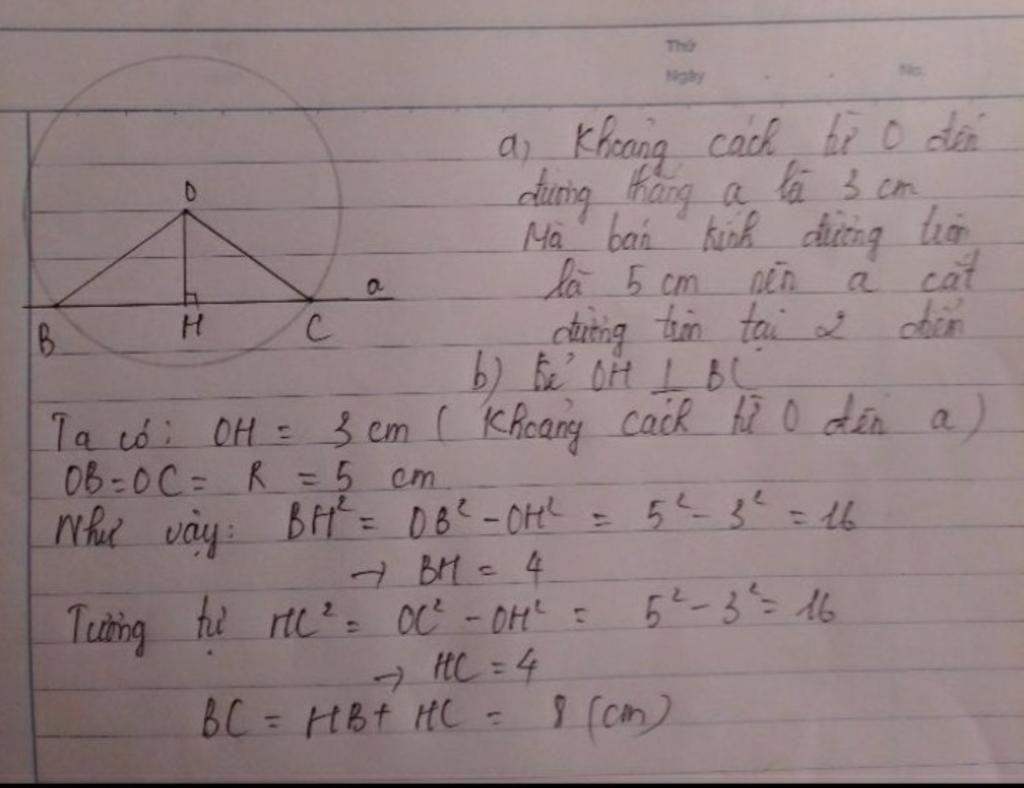 Thứ
Ngày
No.
a) Khoảng cách từ O đến
đường thẳng a là 3 cm
Mà bán kính đường tròn
là 5 cm nên a cắt
đường tròn tại 2 điểm
O
a
B
H
C
b) Kẻ OH ⊥ BC
Ta có: OH = 3 cm ( Khoảng cách từ O đến a )
OB = OC = R = 5 cm
Như vậy: BH² = OB² - OH² = 5² - 3² = 16
→ BH = 4
Tương tự HC² = OC² - OH² = 5² - 3² = 16
→ HC = 4
BC = HB + HC = 8 (cm)